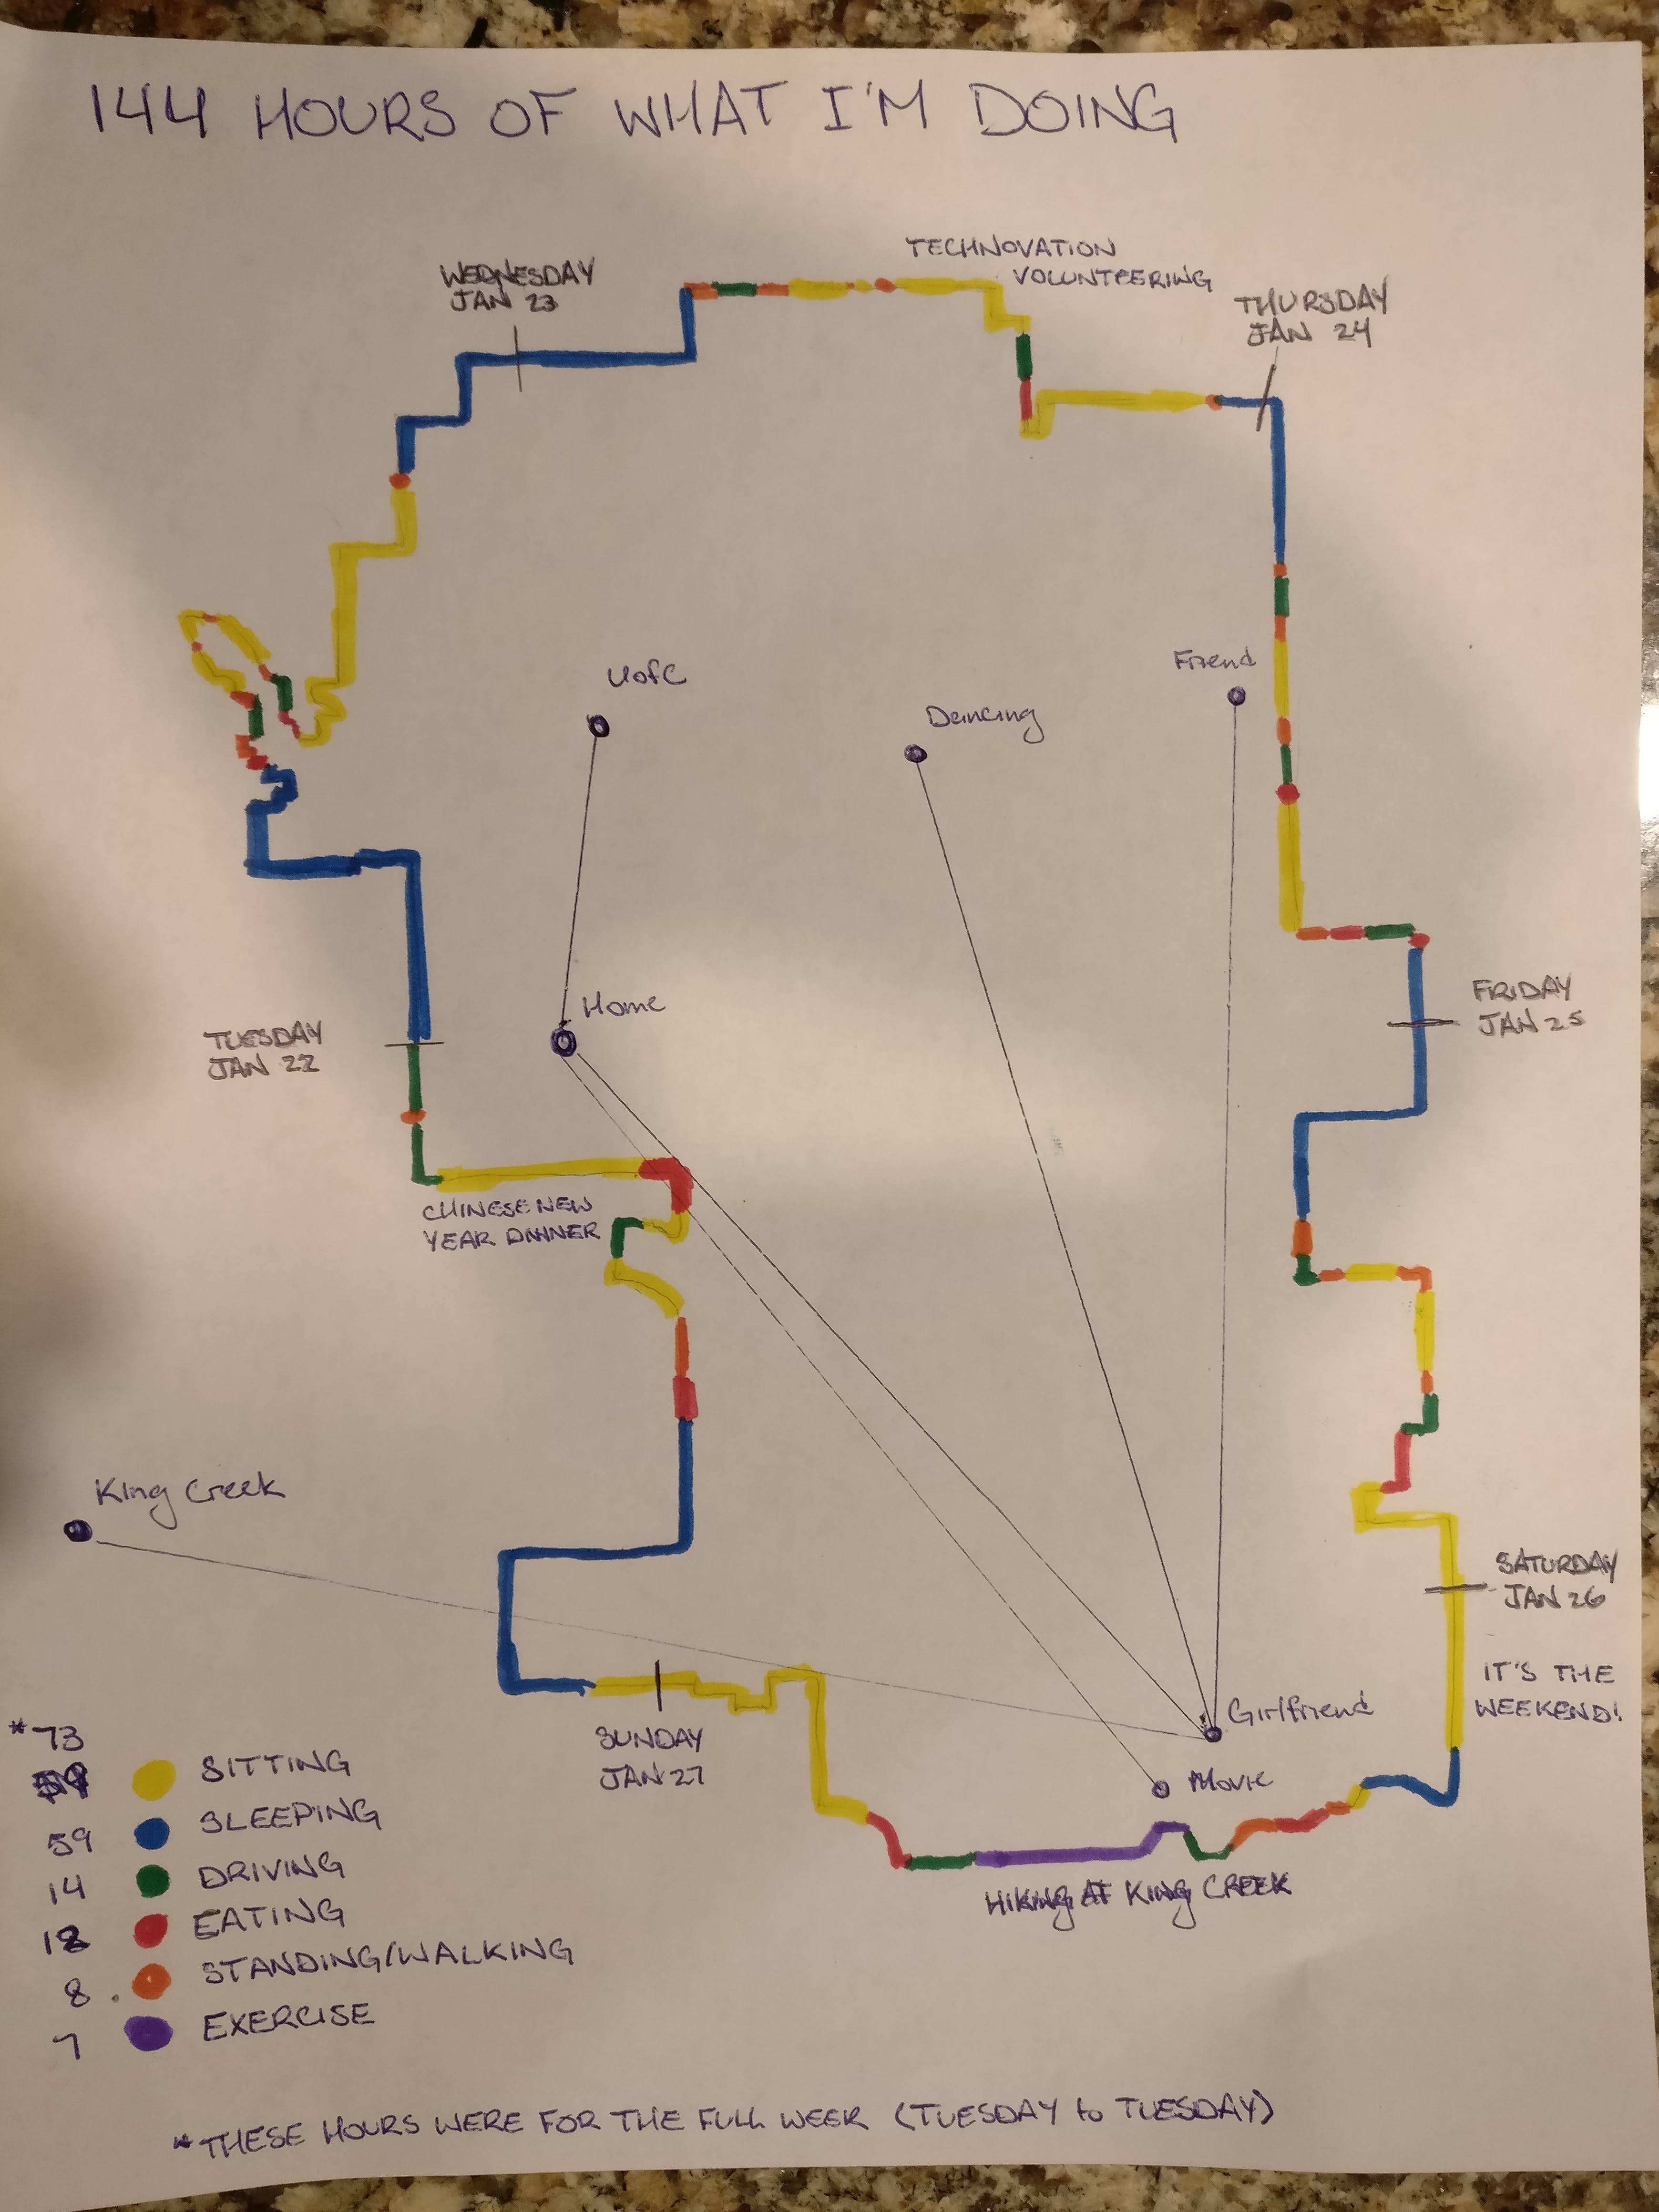 144 HOURS OF WHAT I'M DOING
TECHNOVATION
VOLUNTEERING
WEDNESDAY
JAN 23
THURSDAY
JAN 24
UofC
Friend
Dancing
Home
TUESDAY
JAN 22
FRIDAY
JAN 25
CHINESE NEW
YEAR DINNER
King Creek
SATURDAY
JAN 26
IT'S THE
WEEKEND!
Girlfriend
Movie
SUNDAY
JAN 27
HIKING AT KING CREEK
*73 SITTING
59 SLEEPING
14 DRIVING
EATING
8 STANDING/WALKING
7 EXERCISE
*THESE HOURS WERE FOR THE FULL WEEK (TUESDAY to TUESDAY)